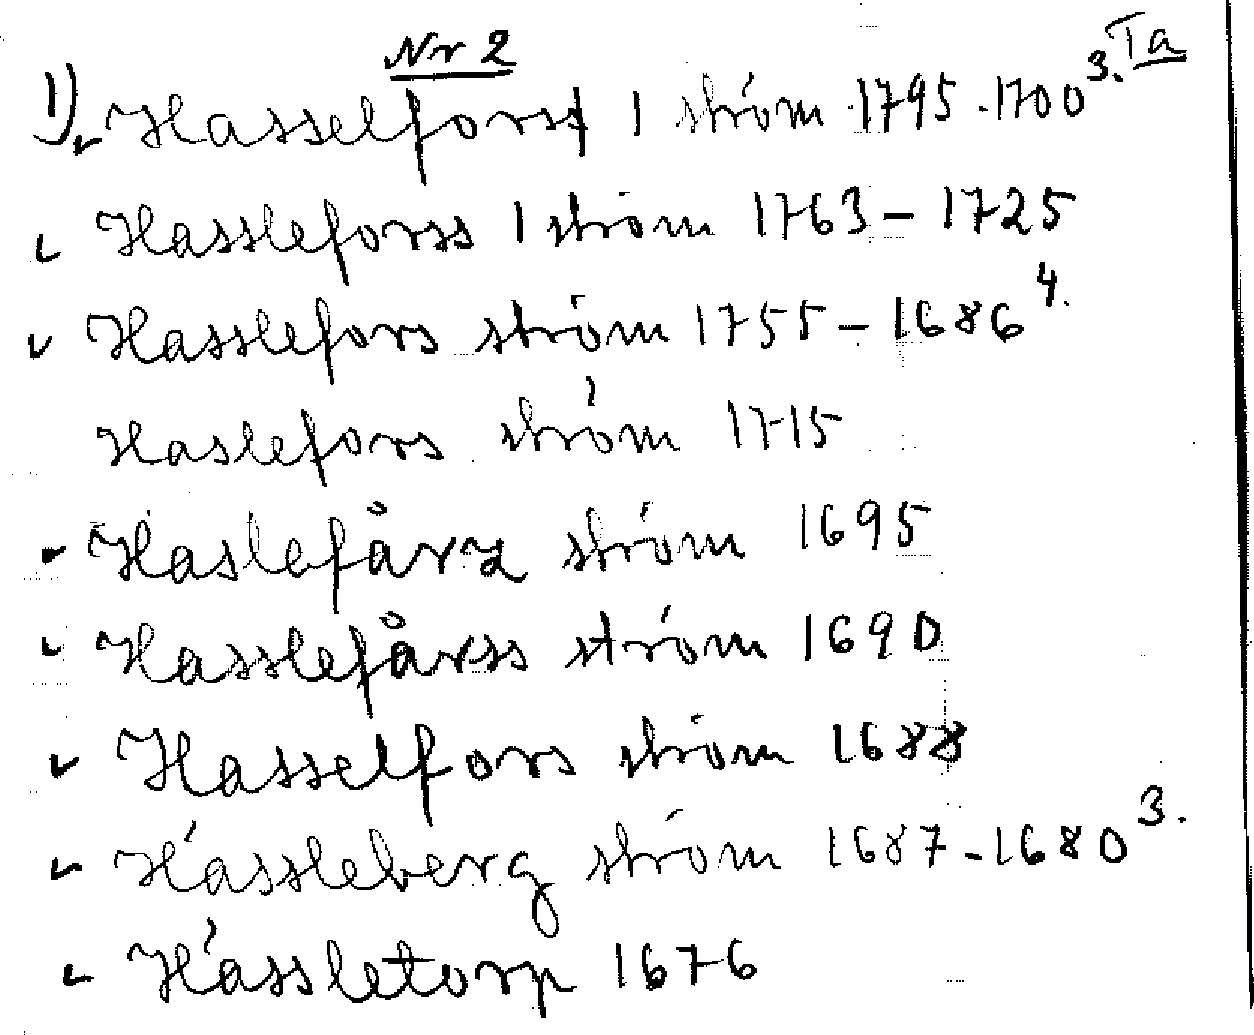 Nr 2
1) Hasselforss 1 ström 1795-1700 3. Ta
Hassleforss 1 ström 1763-1725
Hasslefors ström 1755-1686 4.
Haslefors ström 1715
Haslefårz ström 1695
Hasslefårss ström 1690
Hasselfors ström 1688
Hässleberg ström 1687-1680 3.
Hässletorp 1676